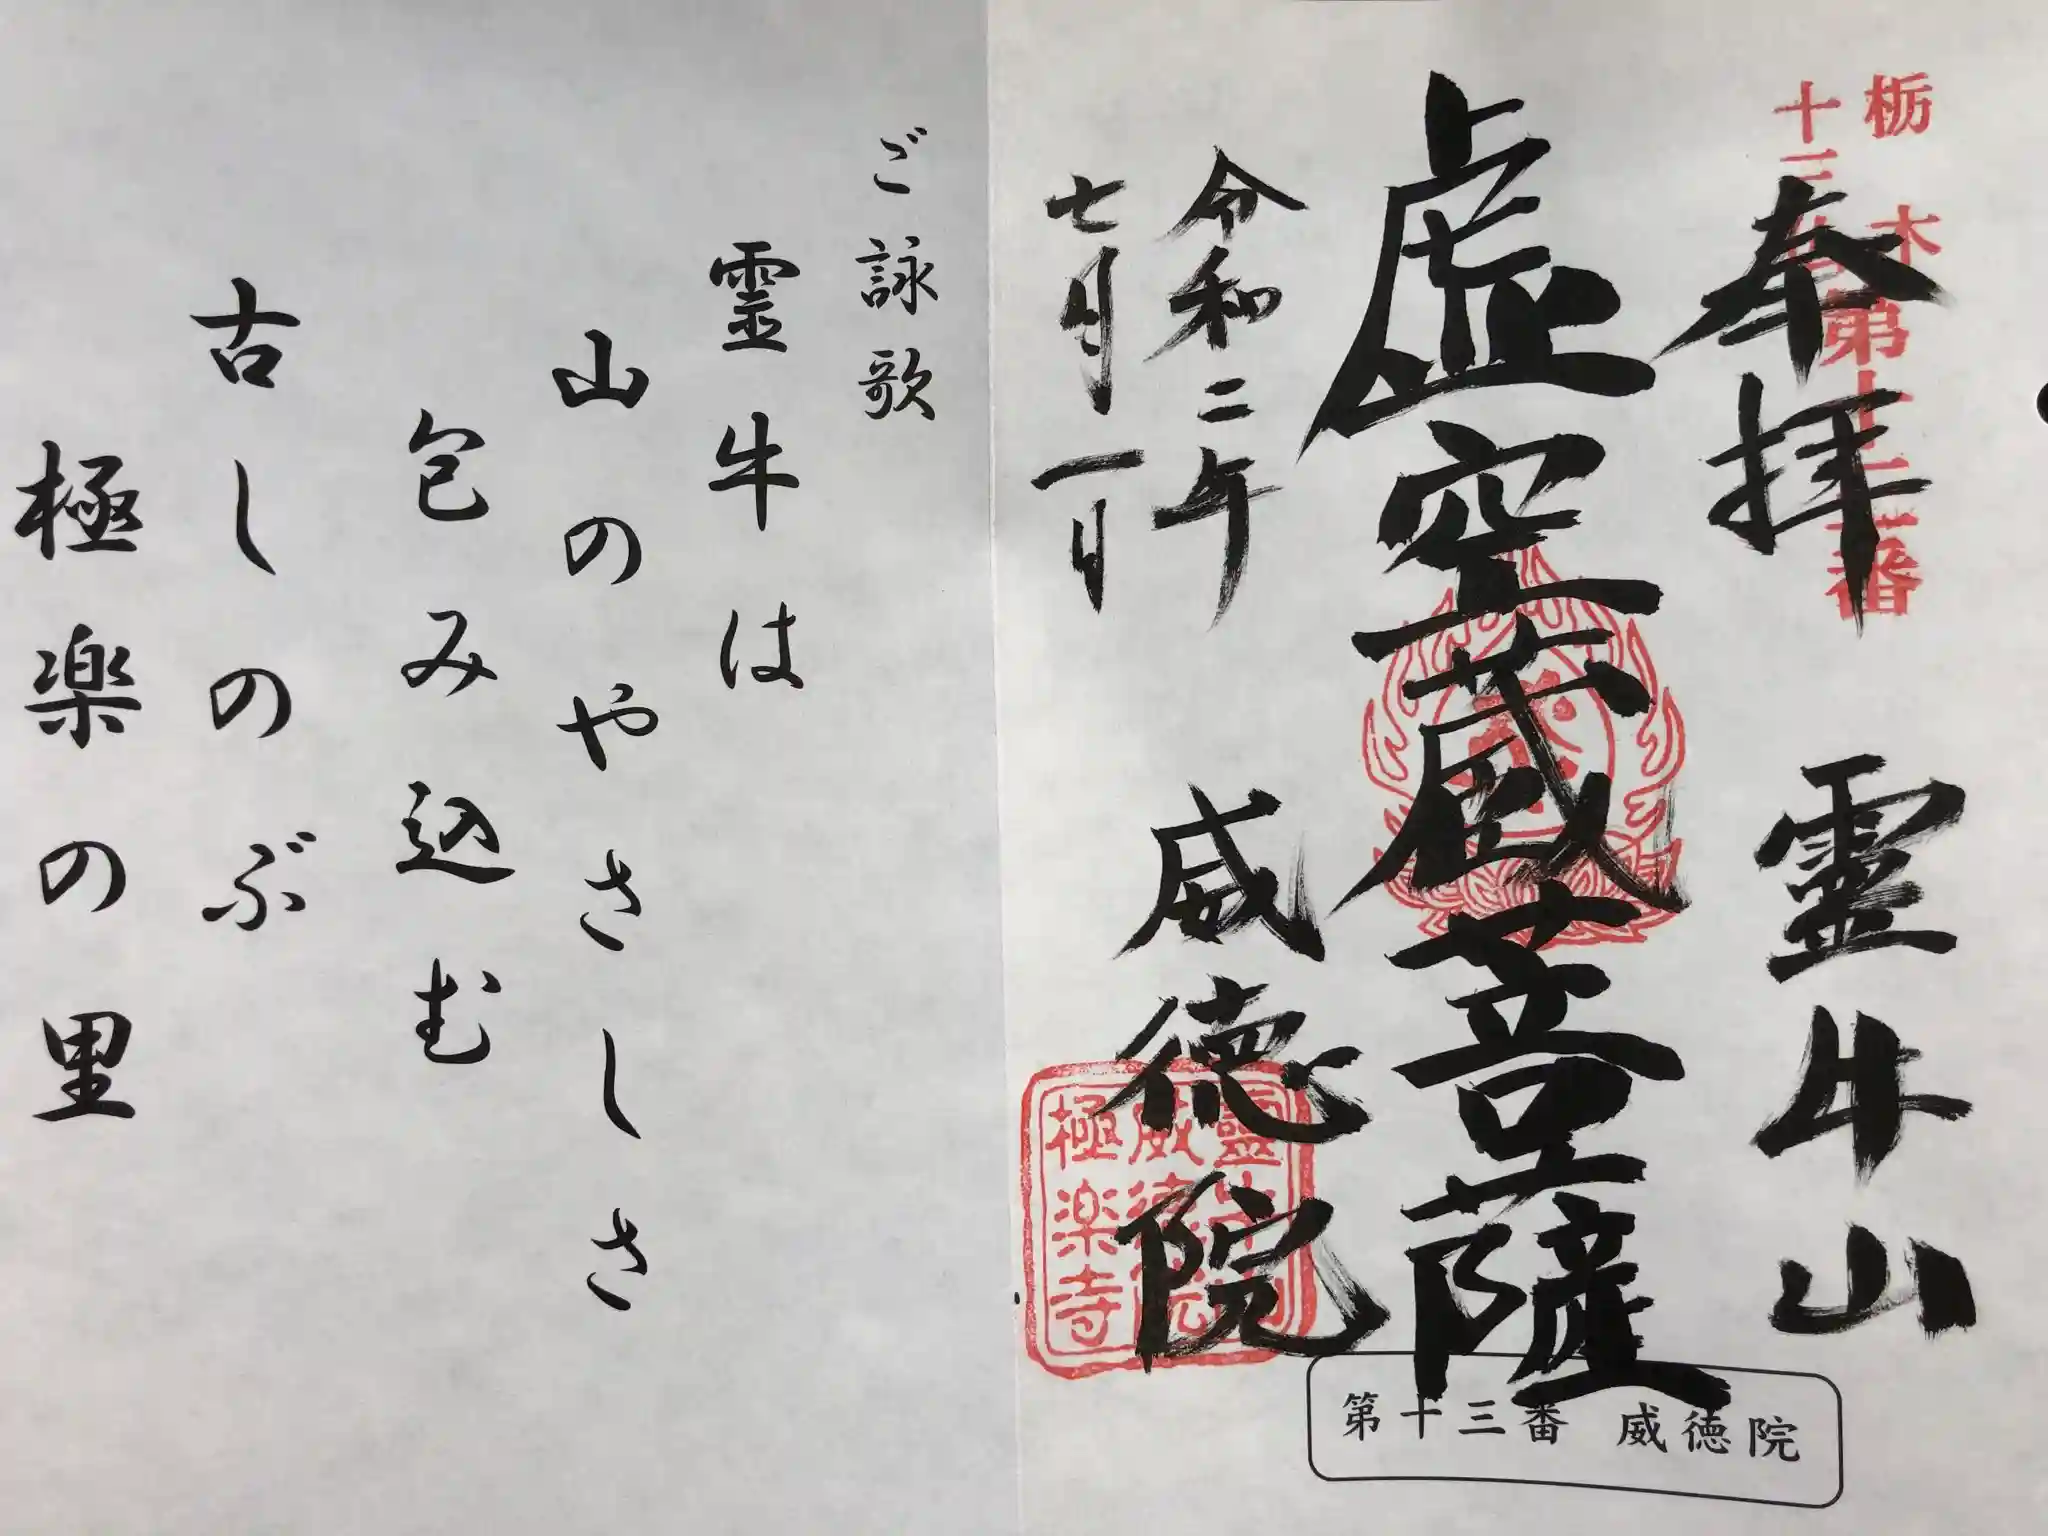 栃木
十三仏
第十三番
奉拝 霊牛山
虚空蔵菩薩
令和二年
七月一日
威徳院
極楽寺
第十三番 威徳院
ご詠歌
霊牛は
山のやさしさ
包み込む
古しのぶ
極楽の里